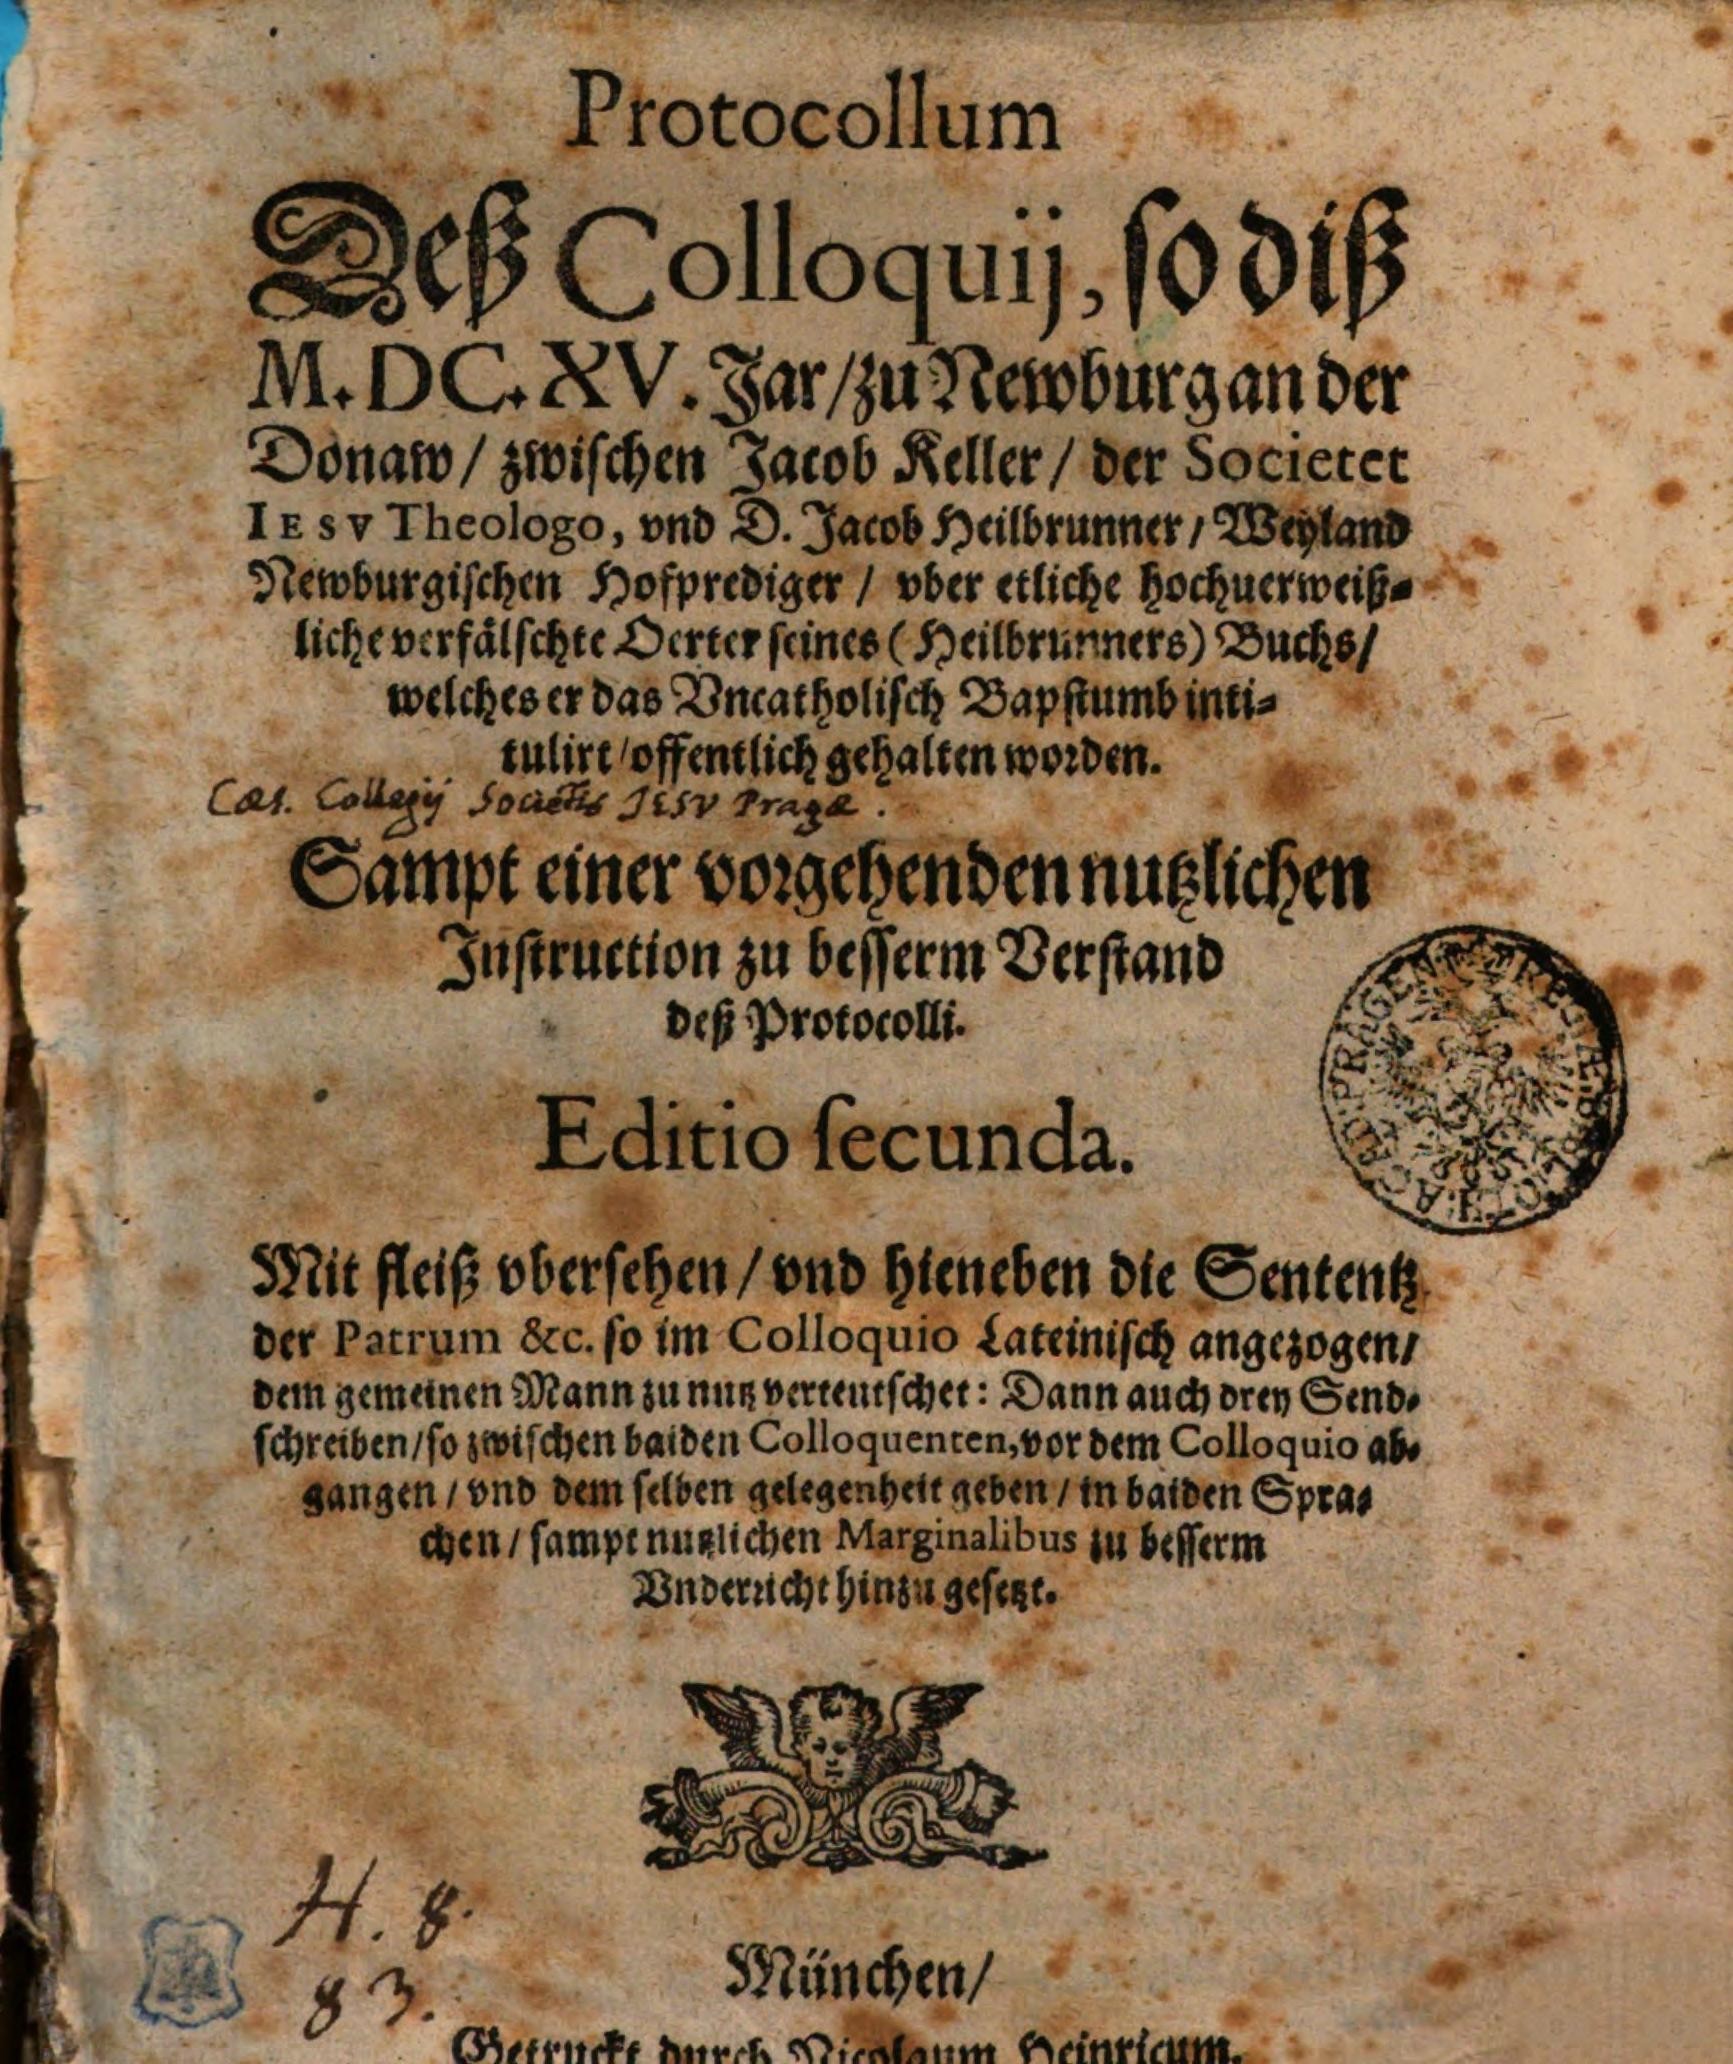 Protocollum
Deß Colloquij, ſo diß
M.DC.XV. Jar/zu Newburg an der
Donaw/ zwiſchen Jacob Keller/ der Societet
IESV Theologo, vnd D. Jacob Heilbrunner/ Weyland
Newburgiſchen Hofprediger/ vber etliche hochuerweiß⸗
liche verfälſchte Oerter ſeines (Heilbrunners) Buchs/
welches er das Vncatholiſch Bapſtumb inti⸗
tulirt/offentlich gehalten worden.
Cæs. Collegij Societis JESV Pragæ.
Sampt einer vorgehenden nutzlichen
Inſtruction zu beſſerm Verſtand
deß Protocolli.
REGIÆ BIBLIOTH: ACAD: PRAGEN:
Editio ſecunda.
Mit fleiß vberſehen/ vnd hieneben die Sententz
der Patrum &c. ſo im Colloquio Lateiniſch angezogen/
dem gemeinen Mann zu nutz verteutſchet: Dann auch drey Send⸗
ſchreiben/ſo zwiſchen baiden Colloquenten, vor dem Colloquio ab⸗
gangen/ vnd dem ſelben gelegenheit geben/ in baiden Spra⸗
chen/ ſampt nutzlichen Marginalibus zu beſſerm
Vnderricht hinzu geſetzt.
H. 8.
83.
München/
Getruckt durch Nicolaum Heinricum.